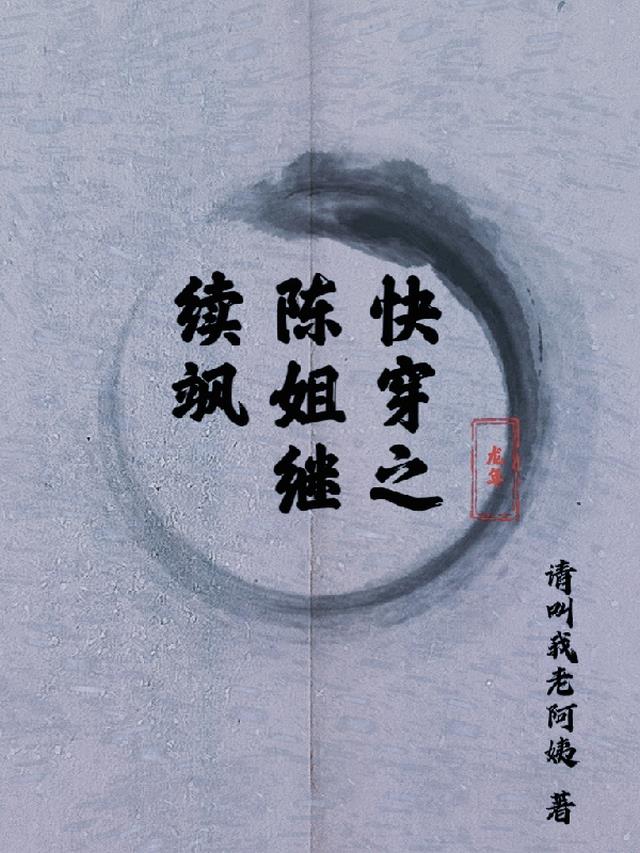 快穿之
陈姐继
续飒
龙年
请叫我老阿姨 著